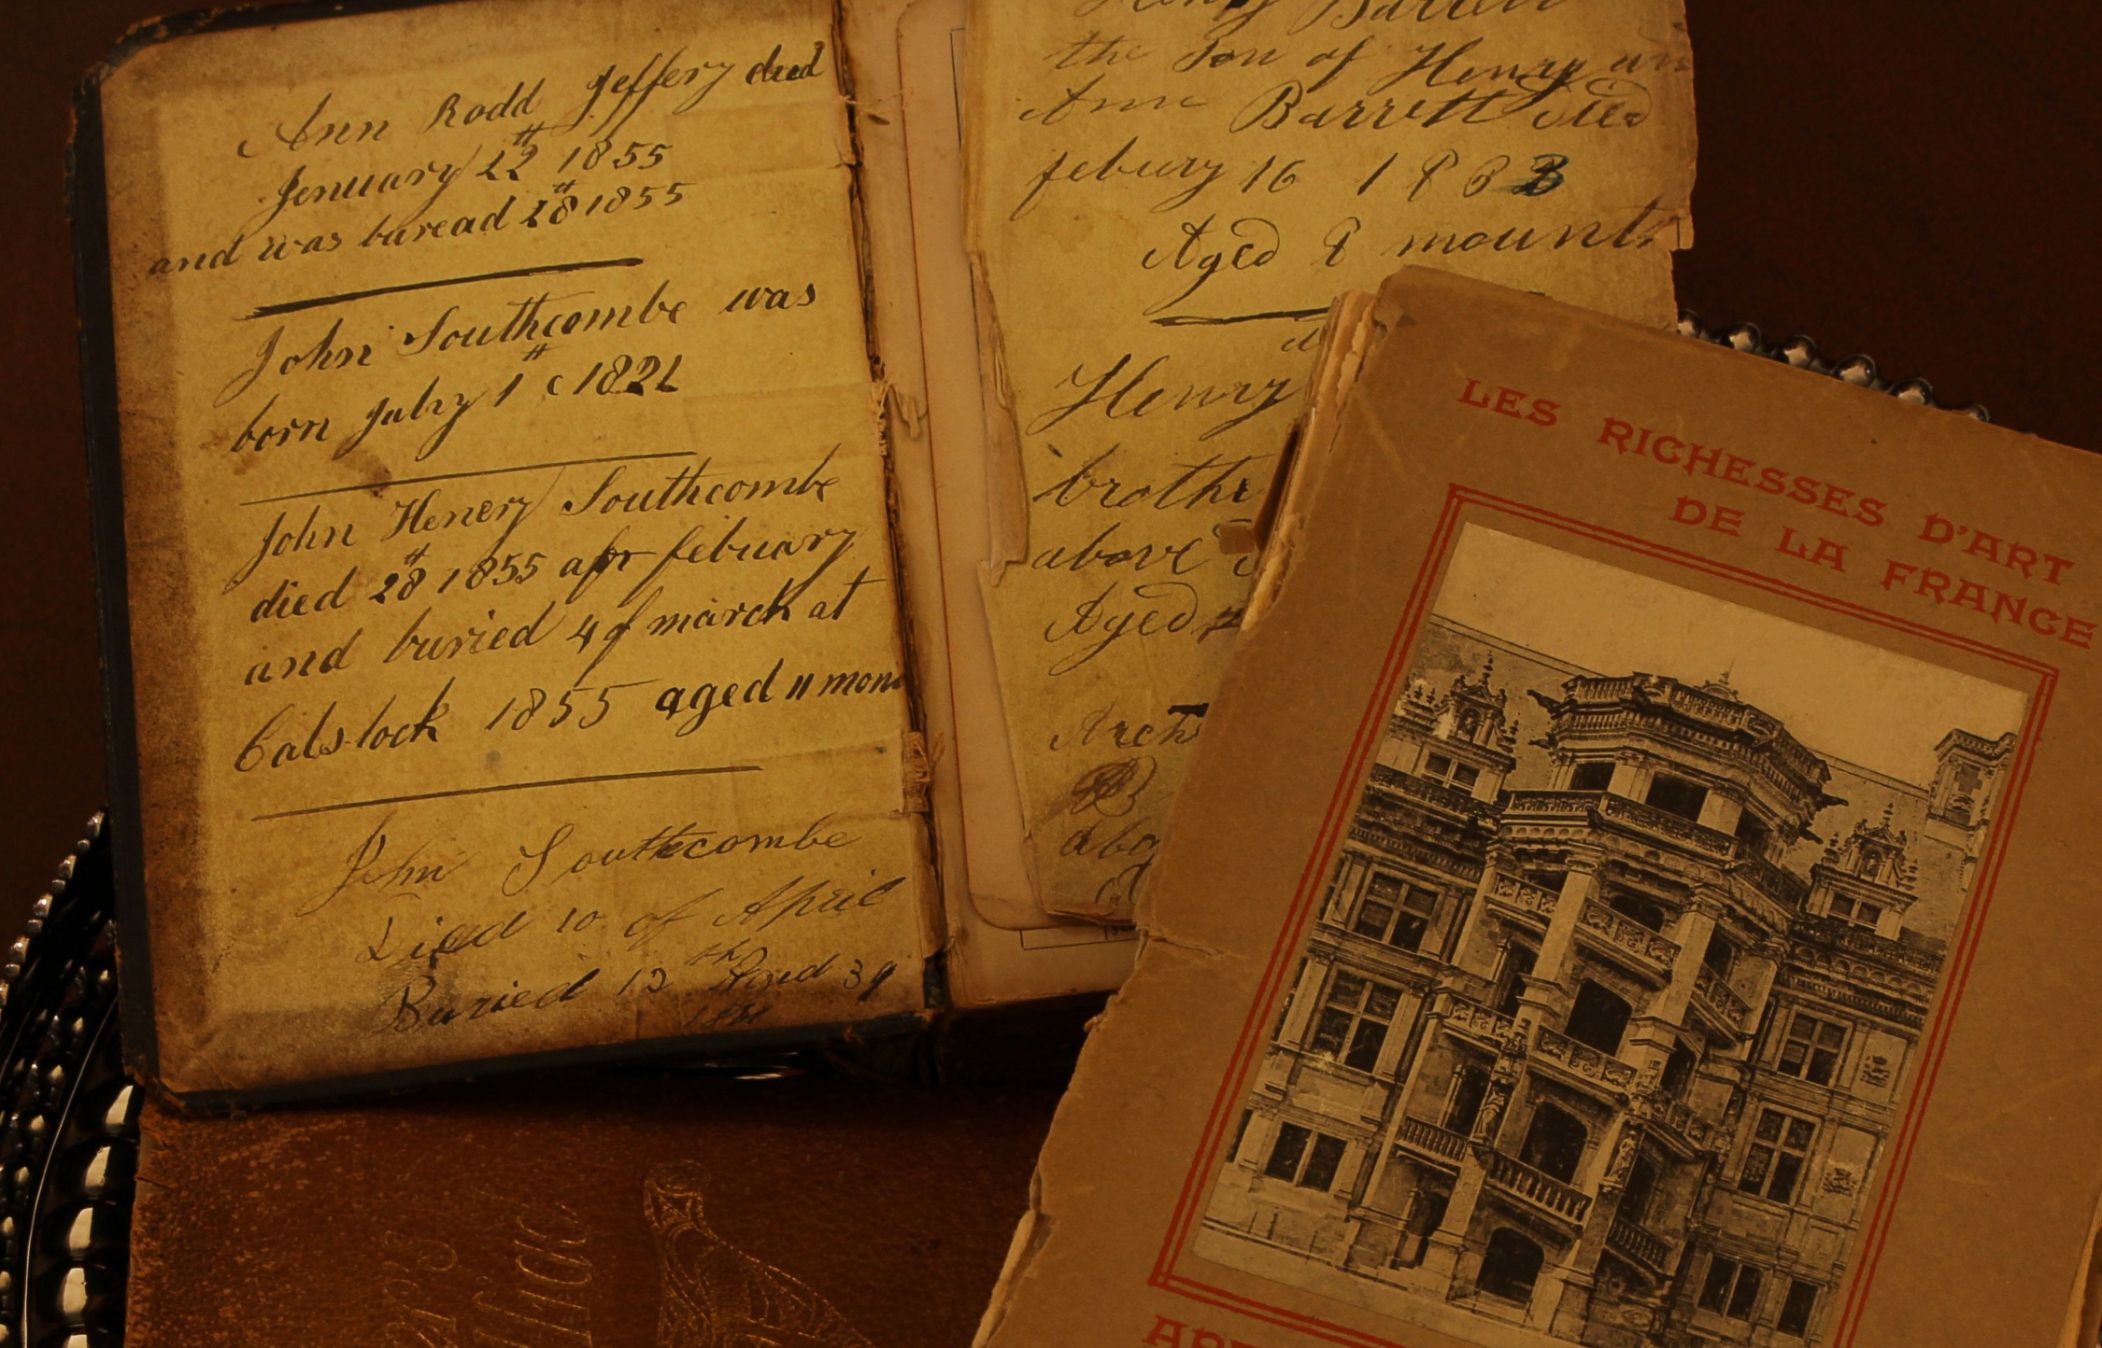 Ann Rodd Jeffery died
Jenuary 22 1855
and was buread 28 1855
John Southcombe was
born July 1 1821
John Henery Southcombe
died 28 1855 febuary
and buried 4 of march at
Calstock 1855 aged 11 mon
John Southcombe
Died 10 of April
Buried 13 th Aged 39
Henry Barrett
the Son of Henry an
Ann Barrett Died
febury 16 1863
Aged 8 mount
Henry
brothe
above
Aged
LES RICHESSES D'ART
DE LA FRANCE